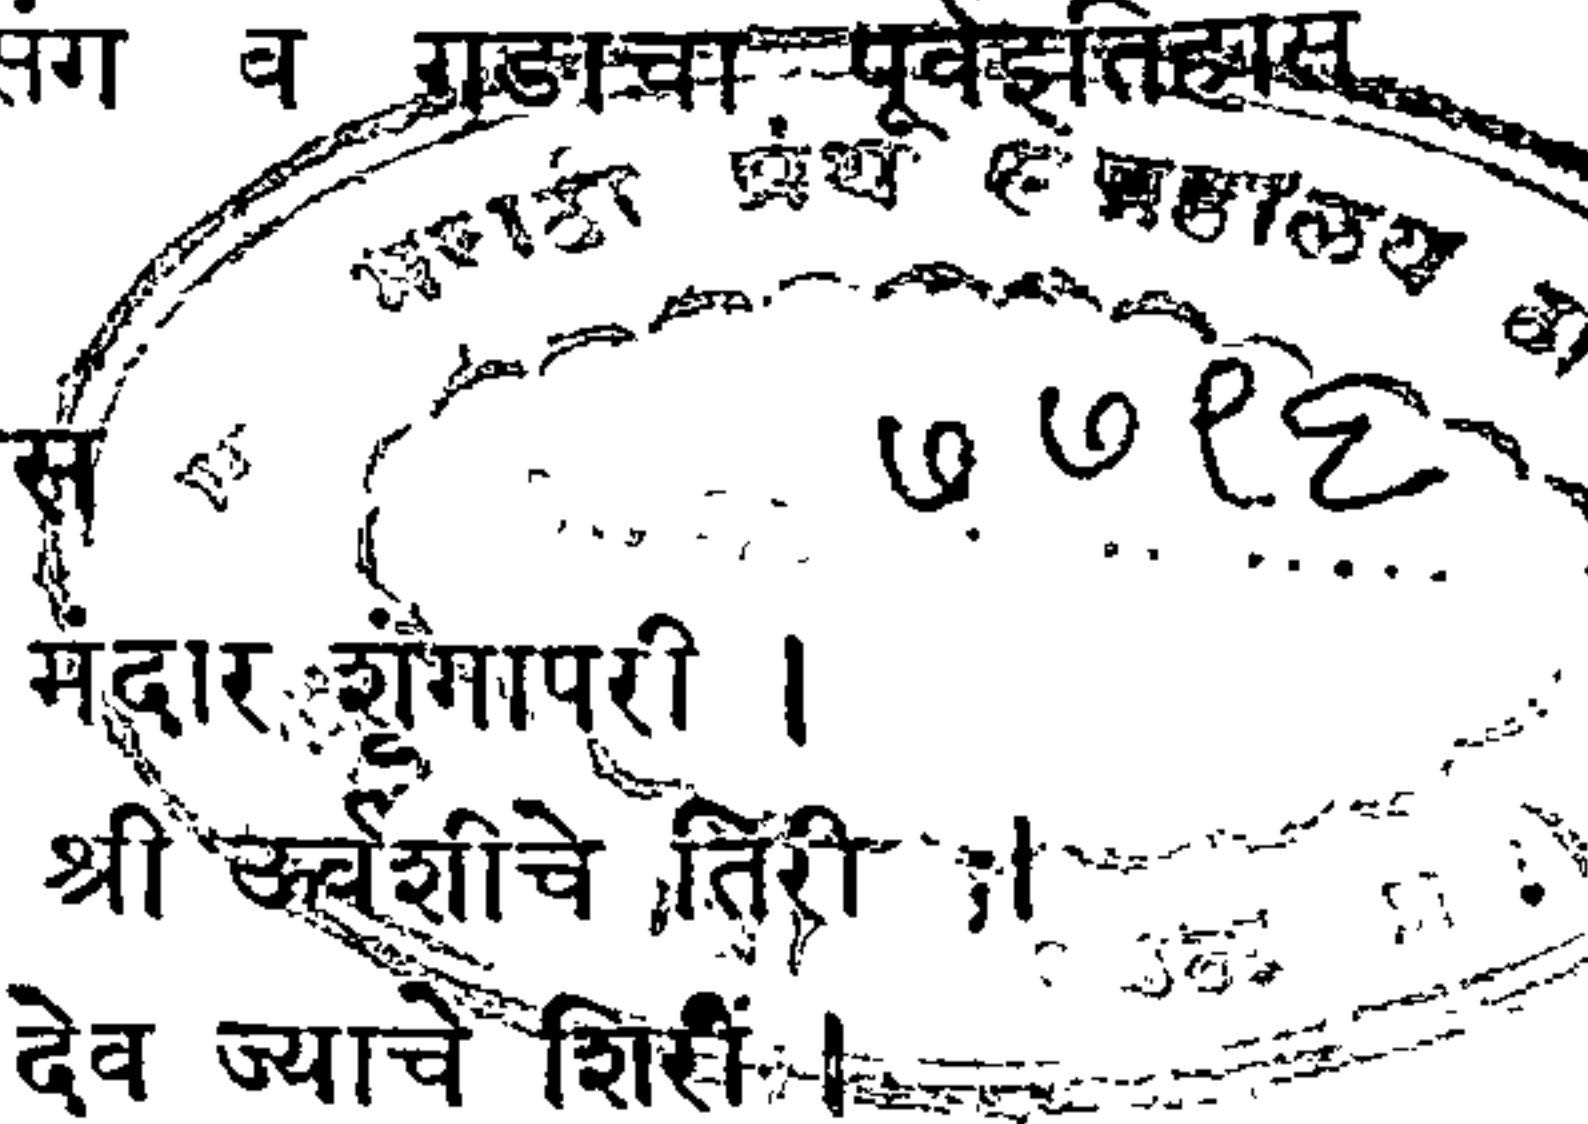 संग व गडाचा पूर्वइतिहास
मराठी ग्रंथ संग्रहालय
७७१६
स
मंदार शृंगापरी ।
श्री ऊर्वशीचे तिरी ।
देव ज्याचे शिरीं ।